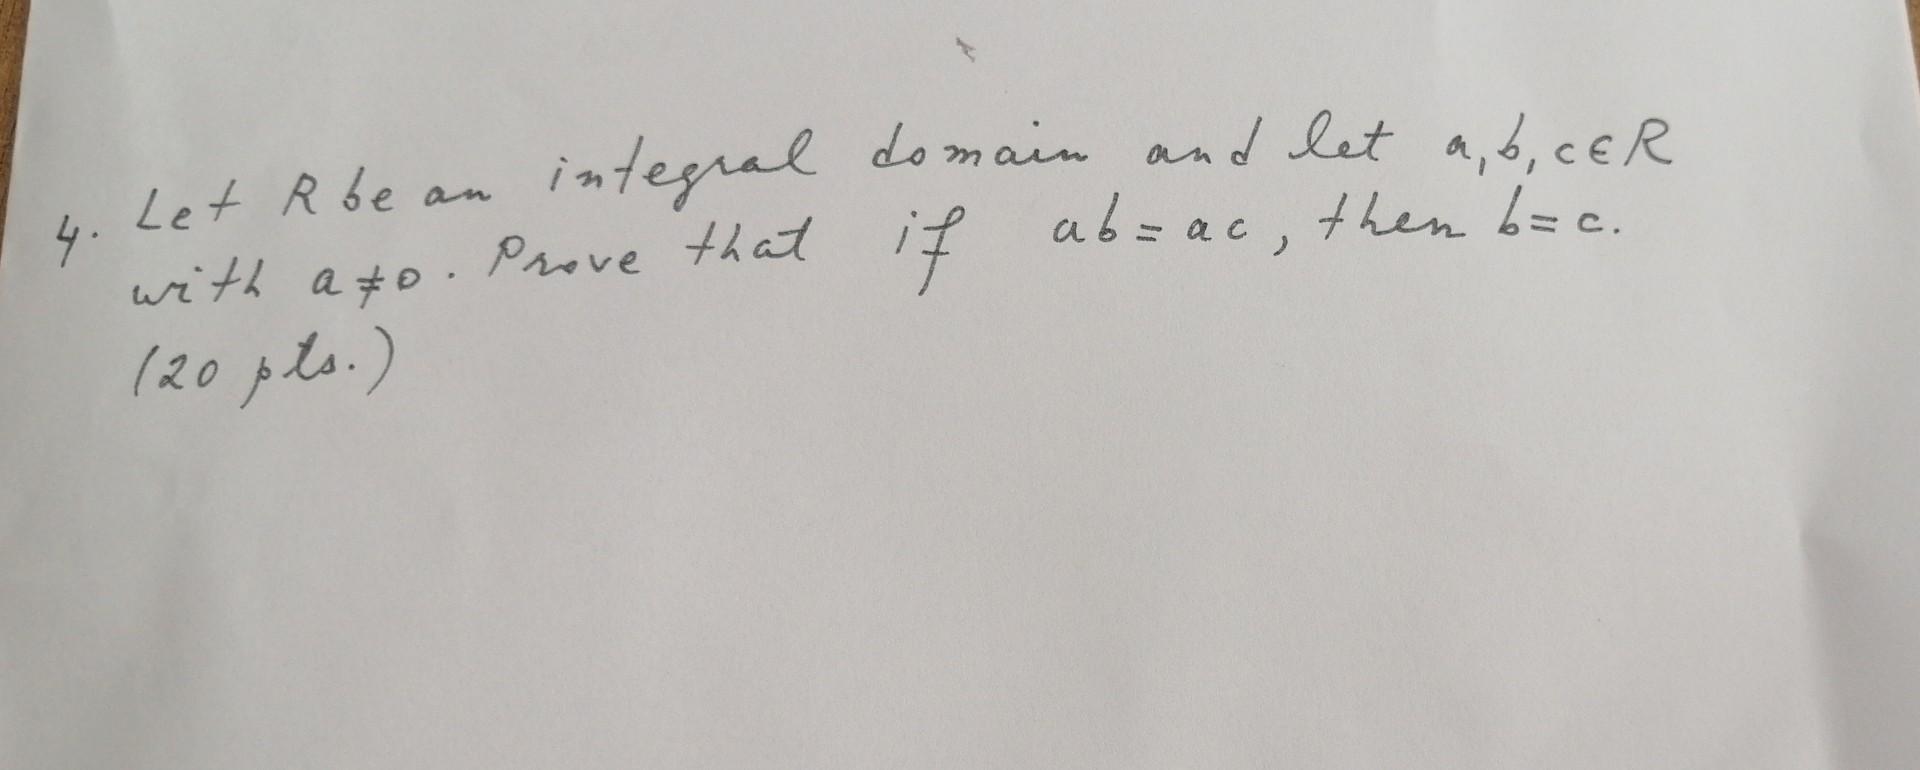 4. Let R be an integral domain and let a, b, c ∈ R
with a ≠ 0. Prove that if ab = ac, then b = c.
(20 pts.)